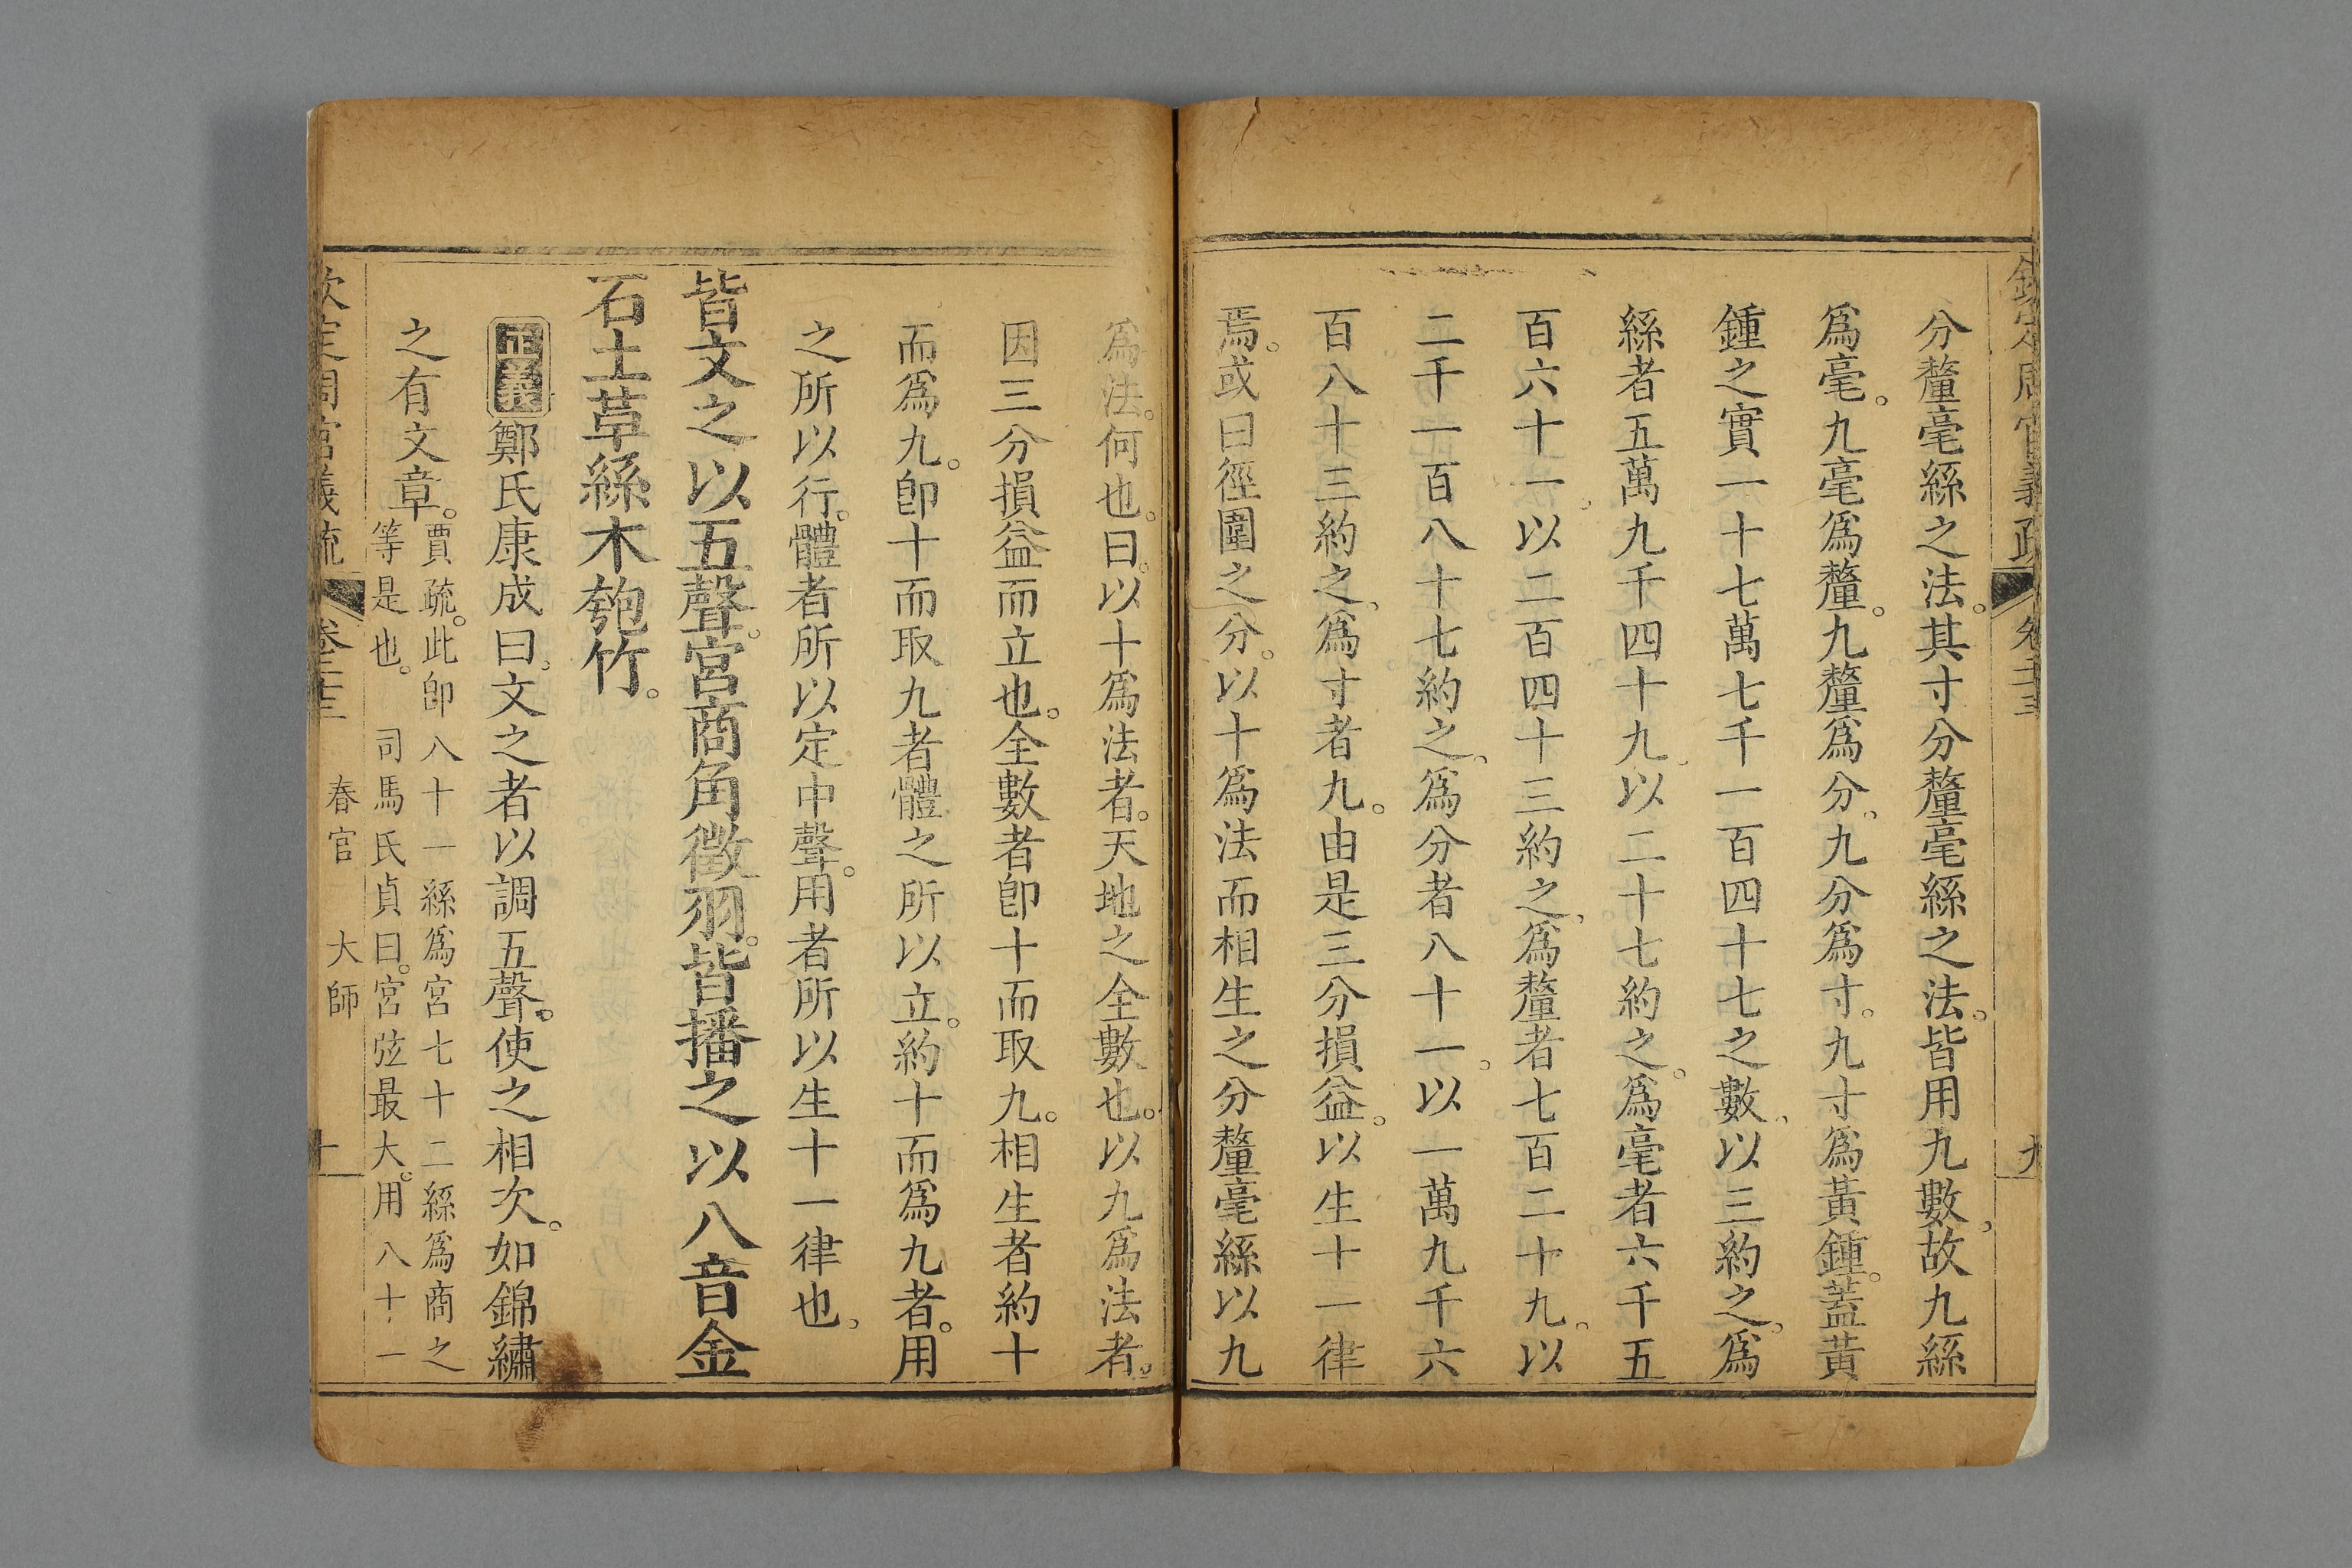 分釐毫絲之法。其寸分釐毫絲之法。皆用九數、故九絲
爲毫。九毫爲釐。九釐爲分、九分爲寸。九寸爲黃鍾。蓋黃
鍾之實一十七萬七千一百四十七之數、以三約之、爲
絲者五萬九千四十九、以二十七約之。爲毫者六千五
百六十一、以二百四十三約之、爲釐者七百二十九。以
二千一百八十七約之、爲分者八十一。以一萬九千六
百八十三約之、爲寸者九。由是三分損益。以生十一律
焉。或曰徑圍之分。以十爲法而相生之分釐毫絲以九
爲法。何也。曰。以十爲法者。天地之全數也。以九爲法者。
因三分損益而立也。全數者卽十而取九。相生者約十
而爲九。卽十而取九者體之所以立。約十而爲九者。用
之所以行。體者所以定中聲。用者所以生十一律也、
皆文之以五聲。宮商角徵羽。皆播之以八音金
石土革絲木匏竹。
正義鄭氏康成曰、文之者以調五聲。使之相次。如錦繡
之有文章。
賈疏。此卽八十一絲爲宮七十二絲爲商之
等是也。　司馬氏貞曰。宮弦最大。用八十一
欽定周官義疏　卷三十三　春官　大師　十